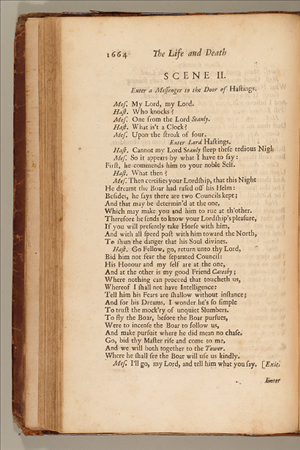 1664 The Life and Death
SCENE II.
Enter a Messenger to the Door of Hastings.
Mes. My Lord, my Lord.
Hast. Who knocks?
Mes. One from the Lord Stanly.
Hast. What is't a Clock?
Mes. Upon the stroak of four.
Enter Lord Hastings.
Hast. Cannot my Lord Stanly sleep these tedious Nigh
Mes. So it appears by what I have to say:
First, he commends him to your noble Self.
Hast. What then?
Mes. Then certifies your Lordship, that this Night
He dreamt the Boar had rased off his Helm:
Besides, he says there are two Councils kept;
And that may be determin'd at the one,
Which may make you and him to rue at th'other.
Therefore he sends to know your Lordship's pleasure,
If you will presently take Horse with him,
And with all speed post with him toward the North,
To shun the danger that his Soul divines.
Hast. Go Fellow, go, return unto thy Lord,
Bid him not fear the separated Council:
His Honour and my self are at the one,
And at the other is my good Friend Catesby;
Where nothing can proceed that toucheth us,
Whereof I shall not have Intelligence:
Tell him his Fears are shallow without instance;
And for his Dreams, I wonder he's so simple
To trust the mock'ry of unquiet Slumbers.
To fly the Boar, before the Boar pursues,
Were to incense the Boar to follow us,
And make pursuit where he did mean no chase.
Go, bid thy Master rise and come to me,
And we will both together to the Tower,
Where he shall see the Boar will use us kindly.
Mes. I'll go, my Lord, and tell him what you say. [Exit.
Enter